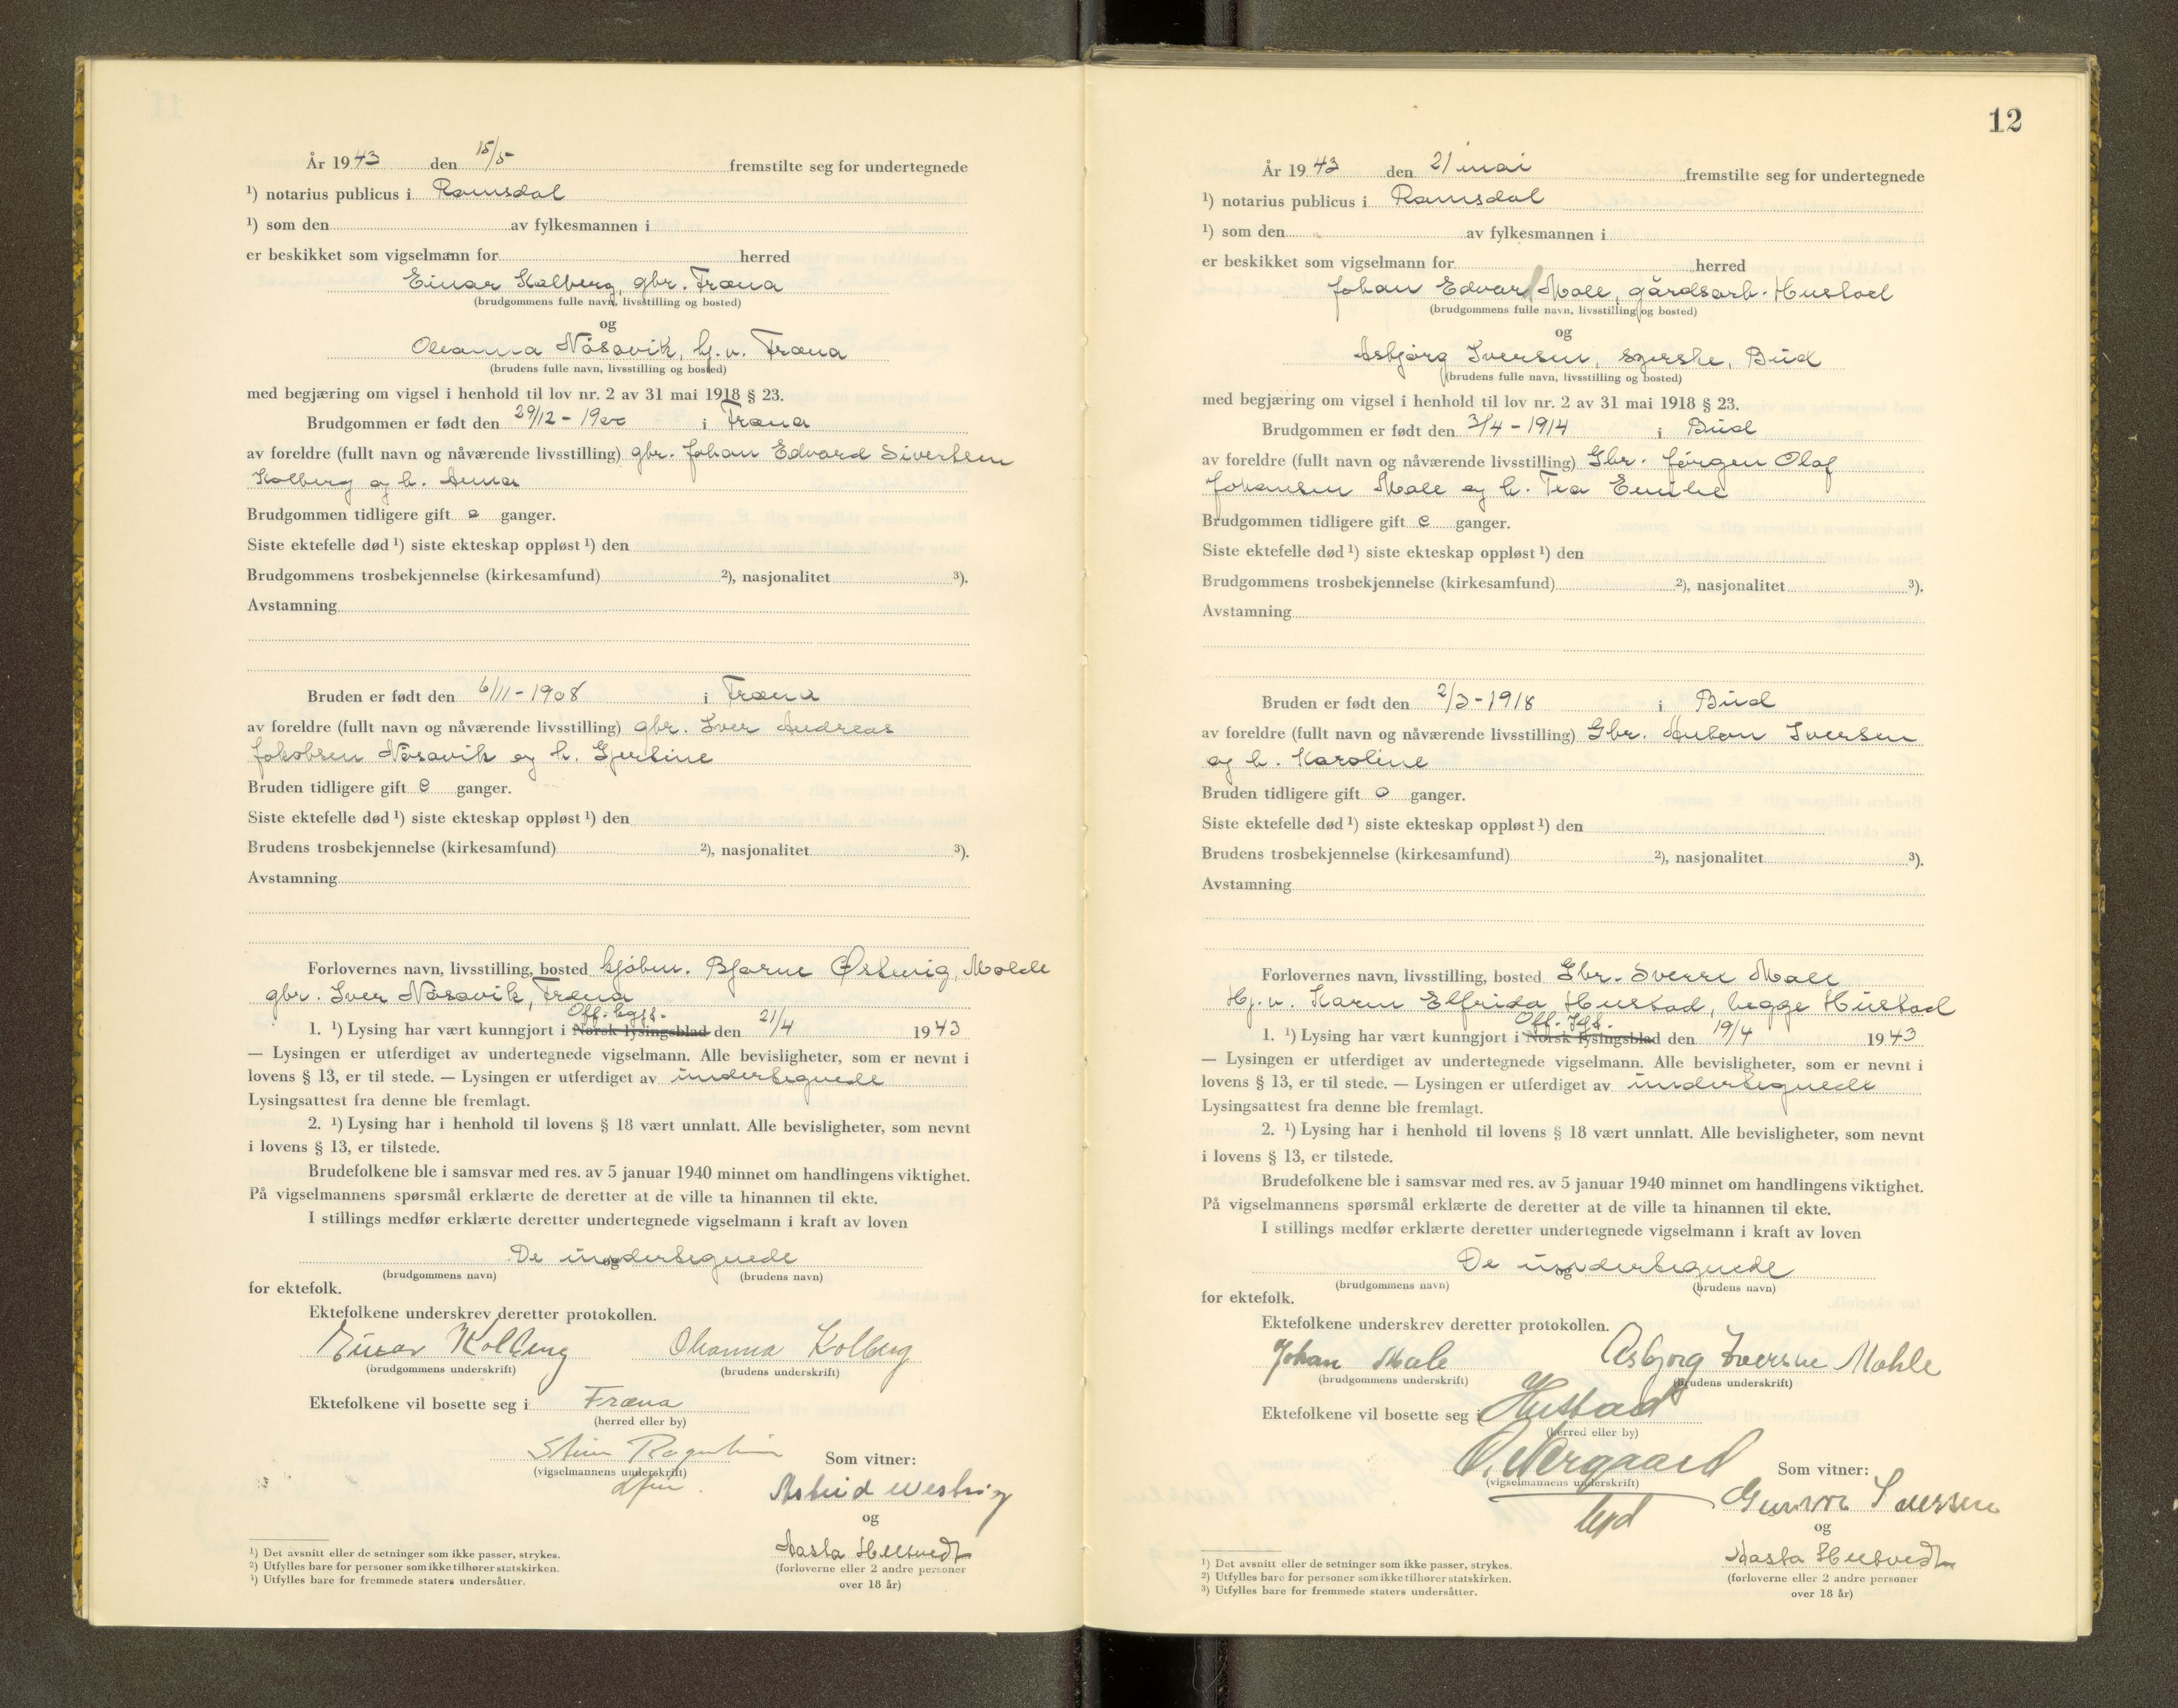 År 1943 den 15/5 fremstilte seg for undertegnede
¹) notarius publicus i Romsdal
¹) som den av fylkesmannen i
er beskikket som vigselmann for herred
Einar Kolberg, gbr. Fræna
(brudgommens fulle navn, livsstilling og bosted)
og
Oleanna Nåsavik, hj.v. Fræna
(brudens fulle navn, livsstilling og bosted)
med begjæring om vigsel i henhold til lov nr. 2 av 31 mai 1918 § 23.
Brudgommen er født den 29/12 - 1900 i Fræna
av foreldre (fullt navn og nåværende livsstilling) gbr. Johan Edvard Sivertsen
Kolberg og h. Anna
Brudgommen tidligere gift 0 ganger.
Siste ektefelle død ¹) siste ekteskap oppløst ¹) den
Brudgommens trosbekjennelse (kirkesamfund) ²), nasjonalitet ³).
Avstamning
Bruden er født den 6/11 - 1908 i Fræna
av foreldre (fullt navn og nåværende livsstilling) gbr. Iver Andreas
Jakobsen Nåsavik og h. Gjertine
Bruden tidligere gift 0 ganger.
Siste ektefelle død ¹) siste ekteskap oppløst ¹) den
Brudens trosbekjennelse (kirkesamfund) ²), nasjonalitet ³).
Avstamning
Forlovernes navn, livsstilling, bosted kjøbm. Bjarne Østwig, Molde
gbr. Iver Nåsavik, Fræna
Off.
1. ¹) Lysing har vært kunngjort i Norsk lysingsblad den 21/4 1943
— Lysingen er utferdiget av undertegnede vigselmann. Alle bevisligheter, som er nevnt i
lovens § 13, er til stede. — Lysingen er utferdiget av undertegnede
Lysingsattest fra denne ble fremlagt.
2. ¹) Lysing har i henhold til lovens § 18 vært unnlatt. Alle bevisligheter, som nevnt
i lovens § 13, er tilstede.
Brudefolkene ble i samsvar med res. av 5 januar 1940 minnet om handlingens viktighet.
På vigselmannens spørsmål erklærte de deretter at de ville ta hinannen til ekte.
I stillings medfør erklærte deretter undertegnede vigselmann i kraft av loven
De undertegnede
og
(brudgommens navn) (brudens navn)
for ektefolk.
Ektefolkene underskrev deretter protokollen.
Einar Kolberg Oleanna Kolberg
(brudgommens underskrift) (brudens underskrift)
Ektefolkene vil bosette seg i Fræna
(herred eller by)
Som vitner:
(vigselmannens underskrift)
Astrid Westvig
og
Aasta Heltvedt
(forloverne eller 2 andre personer
over 18 år)
¹) Det avsnitt eller de setninger som ikke passer, strykes.
²) Utfylles bare for personer som ikke tilhører statskirken.
³) Utfylles bare for fremmede staters undersåtter.
12
År 1943 den 21 mai fremstilte seg for undertegnede
¹) notarius publicus i Romsdal
¹) som den av fylkesmannen i
er beskikket som vigselmann for herred
Johan Edvar Male, gårdsarb. Hustad
(brudgommens fulle navn, livsstilling og bosted)
og
Asbjørg Iversen, syerske, Bud
(brudens fulle navn, livsstilling og bosted)
med begjæring om vigsel i henhold til lov nr. 2 av 31 mai 1918 § 23.
Brudgommen er født den 3/4 - 1914 i Bud
av foreldre (fullt navn og nåværende livsstilling) Gbr. Jørgen Olaf
Johansen Male og h. Tea Emilie
Brudgommen tidligere gift 0 ganger.
Siste ektefelle død ¹) siste ekteskap oppløst ¹) den
Brudgommens trosbekjennelse (kirkesamfund) ²), nasjonalitet ³).
Avstamning
Bruden er født den 2/3 - 1918 i Bud
av foreldre (fullt navn og nåværende livsstilling) Gbr. Anton Iversen
og h. Karoline
Bruden tidligere gift 0 ganger.
Siste ektefelle død ¹) siste ekteskap oppløst ¹) den
Brudens trosbekjennelse (kirkesamfund) ²), nasjonalitet ³).
Avstamning
Forlovernes navn, livsstilling, bosted Gbr. Sverre Male
Hj.v. Karen Elfrida Hustad, begge Hustad
Off.
1. ¹) Lysing har vært kunngjort i Norsk lysingsblad den 19/4 1943
— Lysingen er utferdiget av undertegnede vigselmann. Alle bevisligheter, som er nevnt i
lovens § 13, er til stede. — Lysingen er utferdiget av undertegnede
Lysingsattest fra denne ble fremlagt.
2. ¹) Lysing har i henhold til lovens § 18 vært unnlatt. Alle bevisligheter, som nevnt
i lovens § 13, er tilstede.
Brudefolkene ble i samsvar med res. av 5 januar 1940 minnet om handlingens viktighet.
På vigselmannens spørsmål erklærte de deretter at de ville ta hinannen til ekte.
I stillings medfør erklærte deretter undertegnede vigselmann i kraft av loven
De undertegnede
og
(brudgommens navn) (brudens navn)
for ektefolk.
Ektefolkene underskrev deretter protokollen.
Johan Male Asbjørg Iversen Mahle
(brudgommens underskrift) (brudens underskrift)
Ektefolkene vil bosette seg i Hustad
(herred eller by)
O. Nergaard Som vitner:
(vigselmannens underskrift)
Gunvor Iversen
og
Aasta Heltvedt
(forloverne eller 2 andre personer
over 18 år)
¹) Det avsnitt eller de setninger som ikke passer, strykes.
²) Utfylles bare for personer som ikke tilhører statskirken.
³) Utfylles bare for fremmede staters undersåtter.